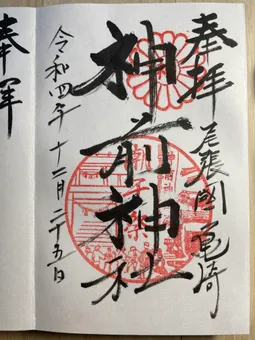 奉拝
尾張国 亀崎
神前神社
令和四年 十二月 二十五日
奉